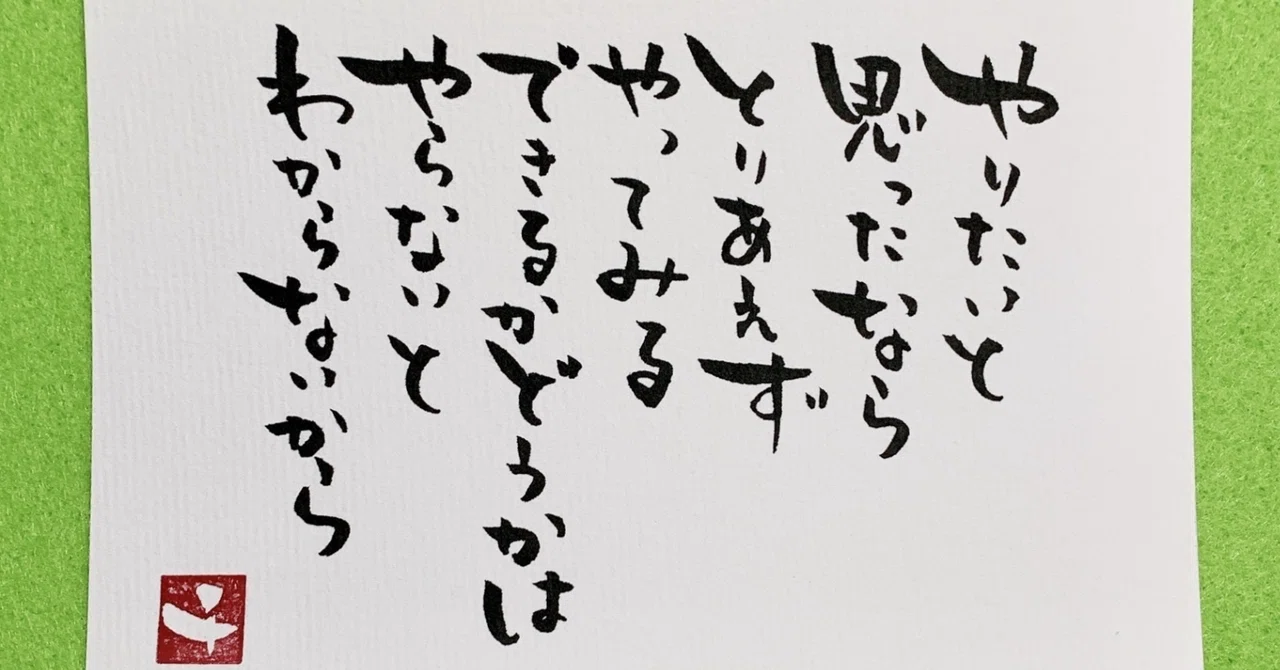 やりたいと
思ったなら
とりあえず
やってみる
できるかどうかは
やらないと
わからないから